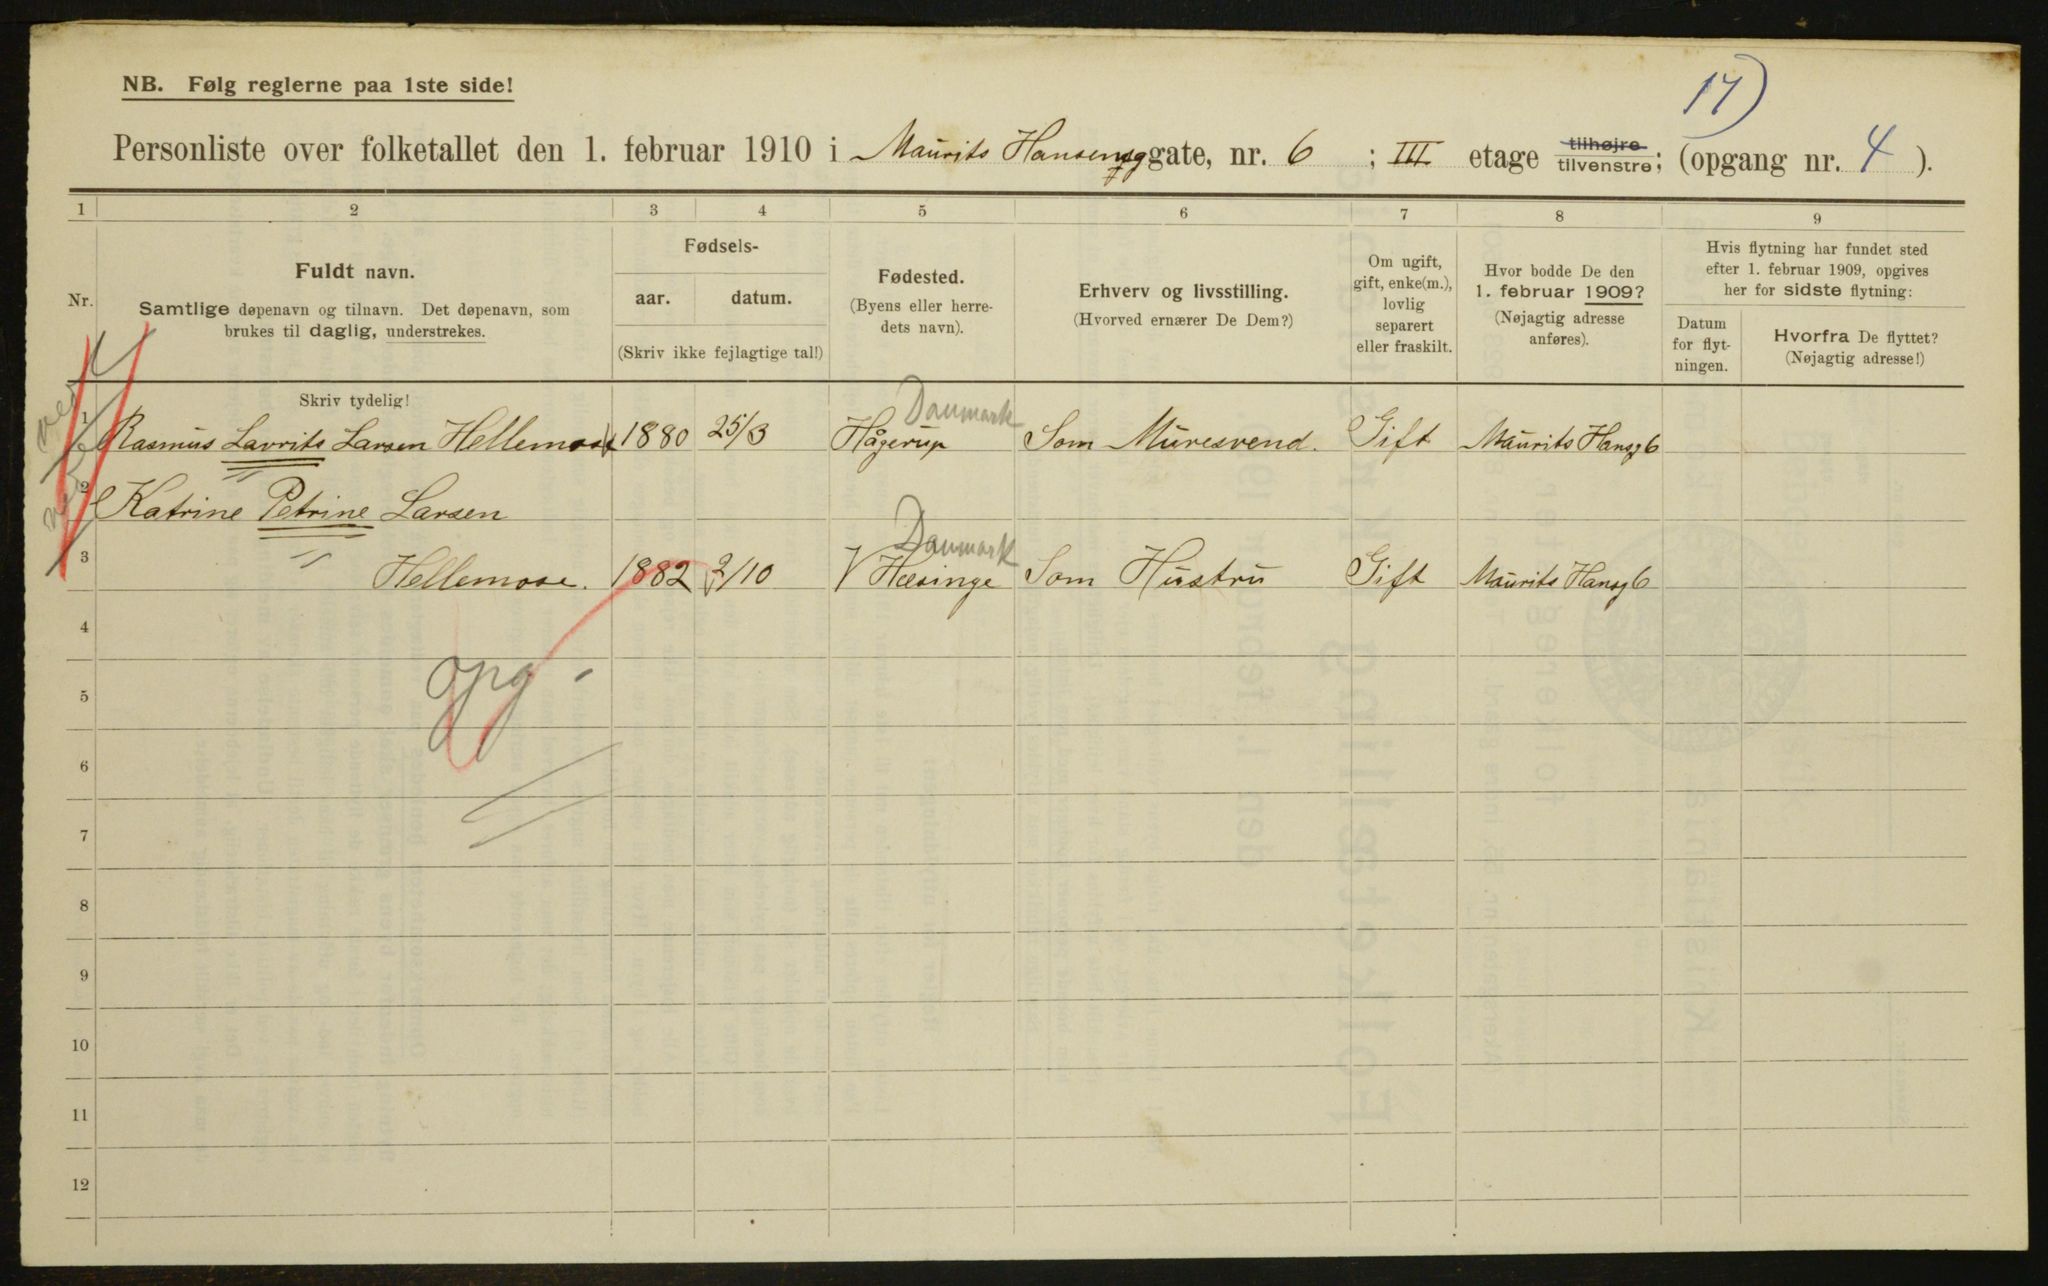 17)
NB. Følg reglerne paa 1ste side!
Personliste over folketallet den 1. februar 1910 i Maurits Hansensggate, nr. 6 ; III etage tilhøjre tilvenstre; (opgang nr. 4 ).
1 2 3 4 5 6 7 8 9
Nr.
Fuldt navn.
Samtlige døpenavn og tilnavn. Det døpenavn, som
brukes til daglig, understrekes.
Skriv tydelig!
Fødsels-
aar. datum.
(Skriv ikke fejlagtige tal!)
Fødested.
(Byens eller herre-
dets navn).
Erhverv og livsstilling.
(Hvorved ernærer De Dem?)
Om ugift,
gift, enke(m.),
lovlig
separert
eller fraskilt.
Hvor bodde De den
1. februar 1909?
(Nøjagtig adresse
anføres).
Hvis flytning har fundet sted
efter 1. februar 1909, opgives
her for sidste flytning:
Datum
for flyt-
ningen.
Hvorfra De flyttet?
(Nøjagtig adresse!)
Danmark
1 Rasmus Lavrits Larsen Hellemose 1880 25/3 Hågerup Som Muresvend. Gift Maurits Hansg 6
2 Katrine Petrine Larsen
Danmark
3 Hellemose. 1882 2/10 V Hæsinge Som Hustru Gift Maurits Hansg 6
4
opg.
5
6
7
8
9
10
11
12